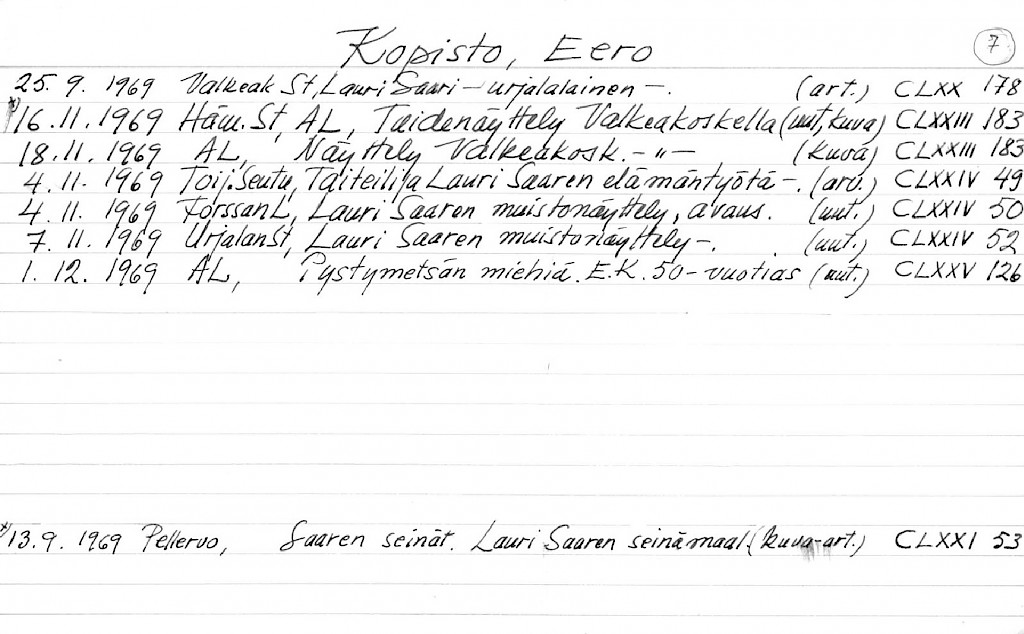 Kopisto, Eero 7
25. 9. 1969 Valkeak St, Lauri Saari – urjalalainen –. (art.) CLXX 178
*) 16. 11. 1969 Häm. St, AL, Taidenäyttely Valkeakoskella (uut, kuva) CLXXIII 183
18. 11. 1969 AL, Näyttely Valkeakosk. – " – (kuva) CLXXIII 183
4. 11. 1969 Toij. Seutu, Taiteilija Lauri Saaren elämäntyötä –. (arv.) CLXXIV 49
4. 11. 1969 Forssan L, Lauri Saaren muistonäyttely, avaus. (uut.) CLXXIV 50
7. 11. 1969 Urjalan St, Lauri Saaren muistonäyttely –. (uut.) CLXXIV 52
1. 12. 1969 AL, Pystymetsän miehiä. E.K. 50-vuotias (uut.) CLXXV 126
*) 13. 9. 1969 Pellervo, Saaren seinät. Lauri Saaren seinämaal. (kuva-art.) CLXXI 53